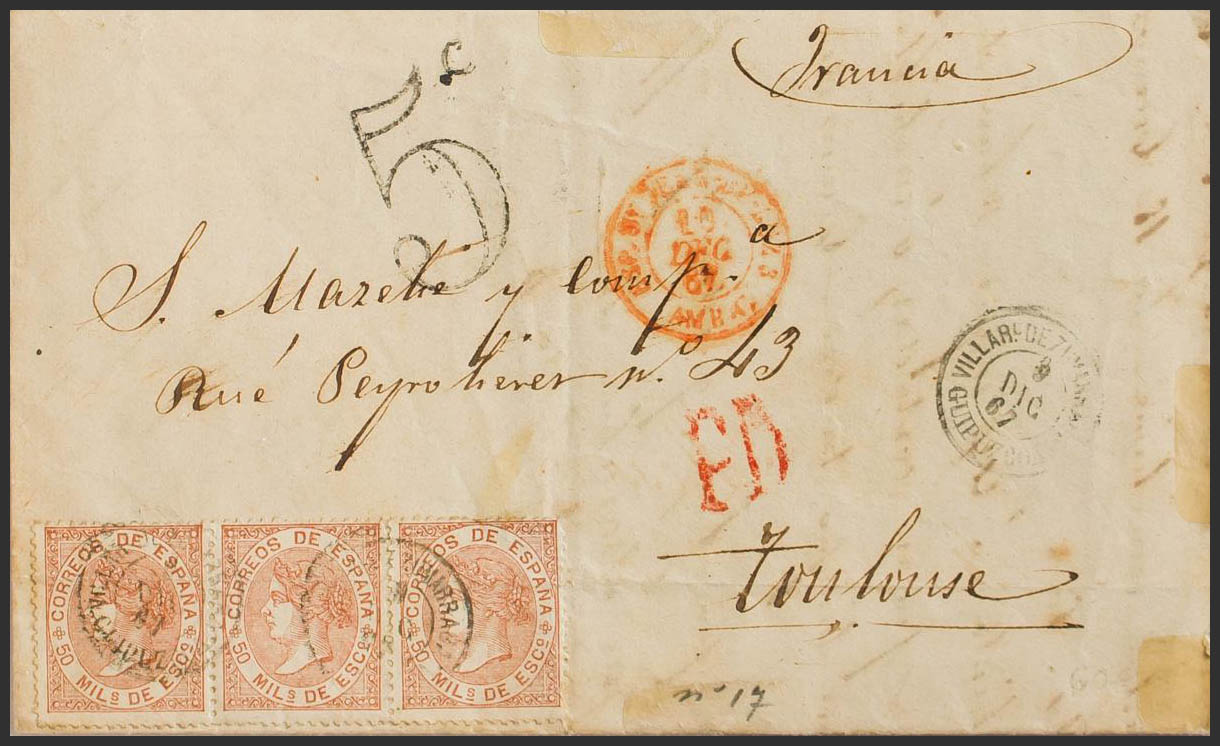 Francia
5 c
10
DEC
67
S. y Comp.a
Rué n.o 43
VILLARL DE ZUMARRAGA
9
DIC
67
GUIPUZCOA
PD
Toulouse
CORREOS DE ESPAÑA
50 MILS DE ESCO
CORREOS DE ESPAÑA
50 MILS DE ESCO
CORREOS DE ESPAÑA
50 MILS DE ESCO
no 17